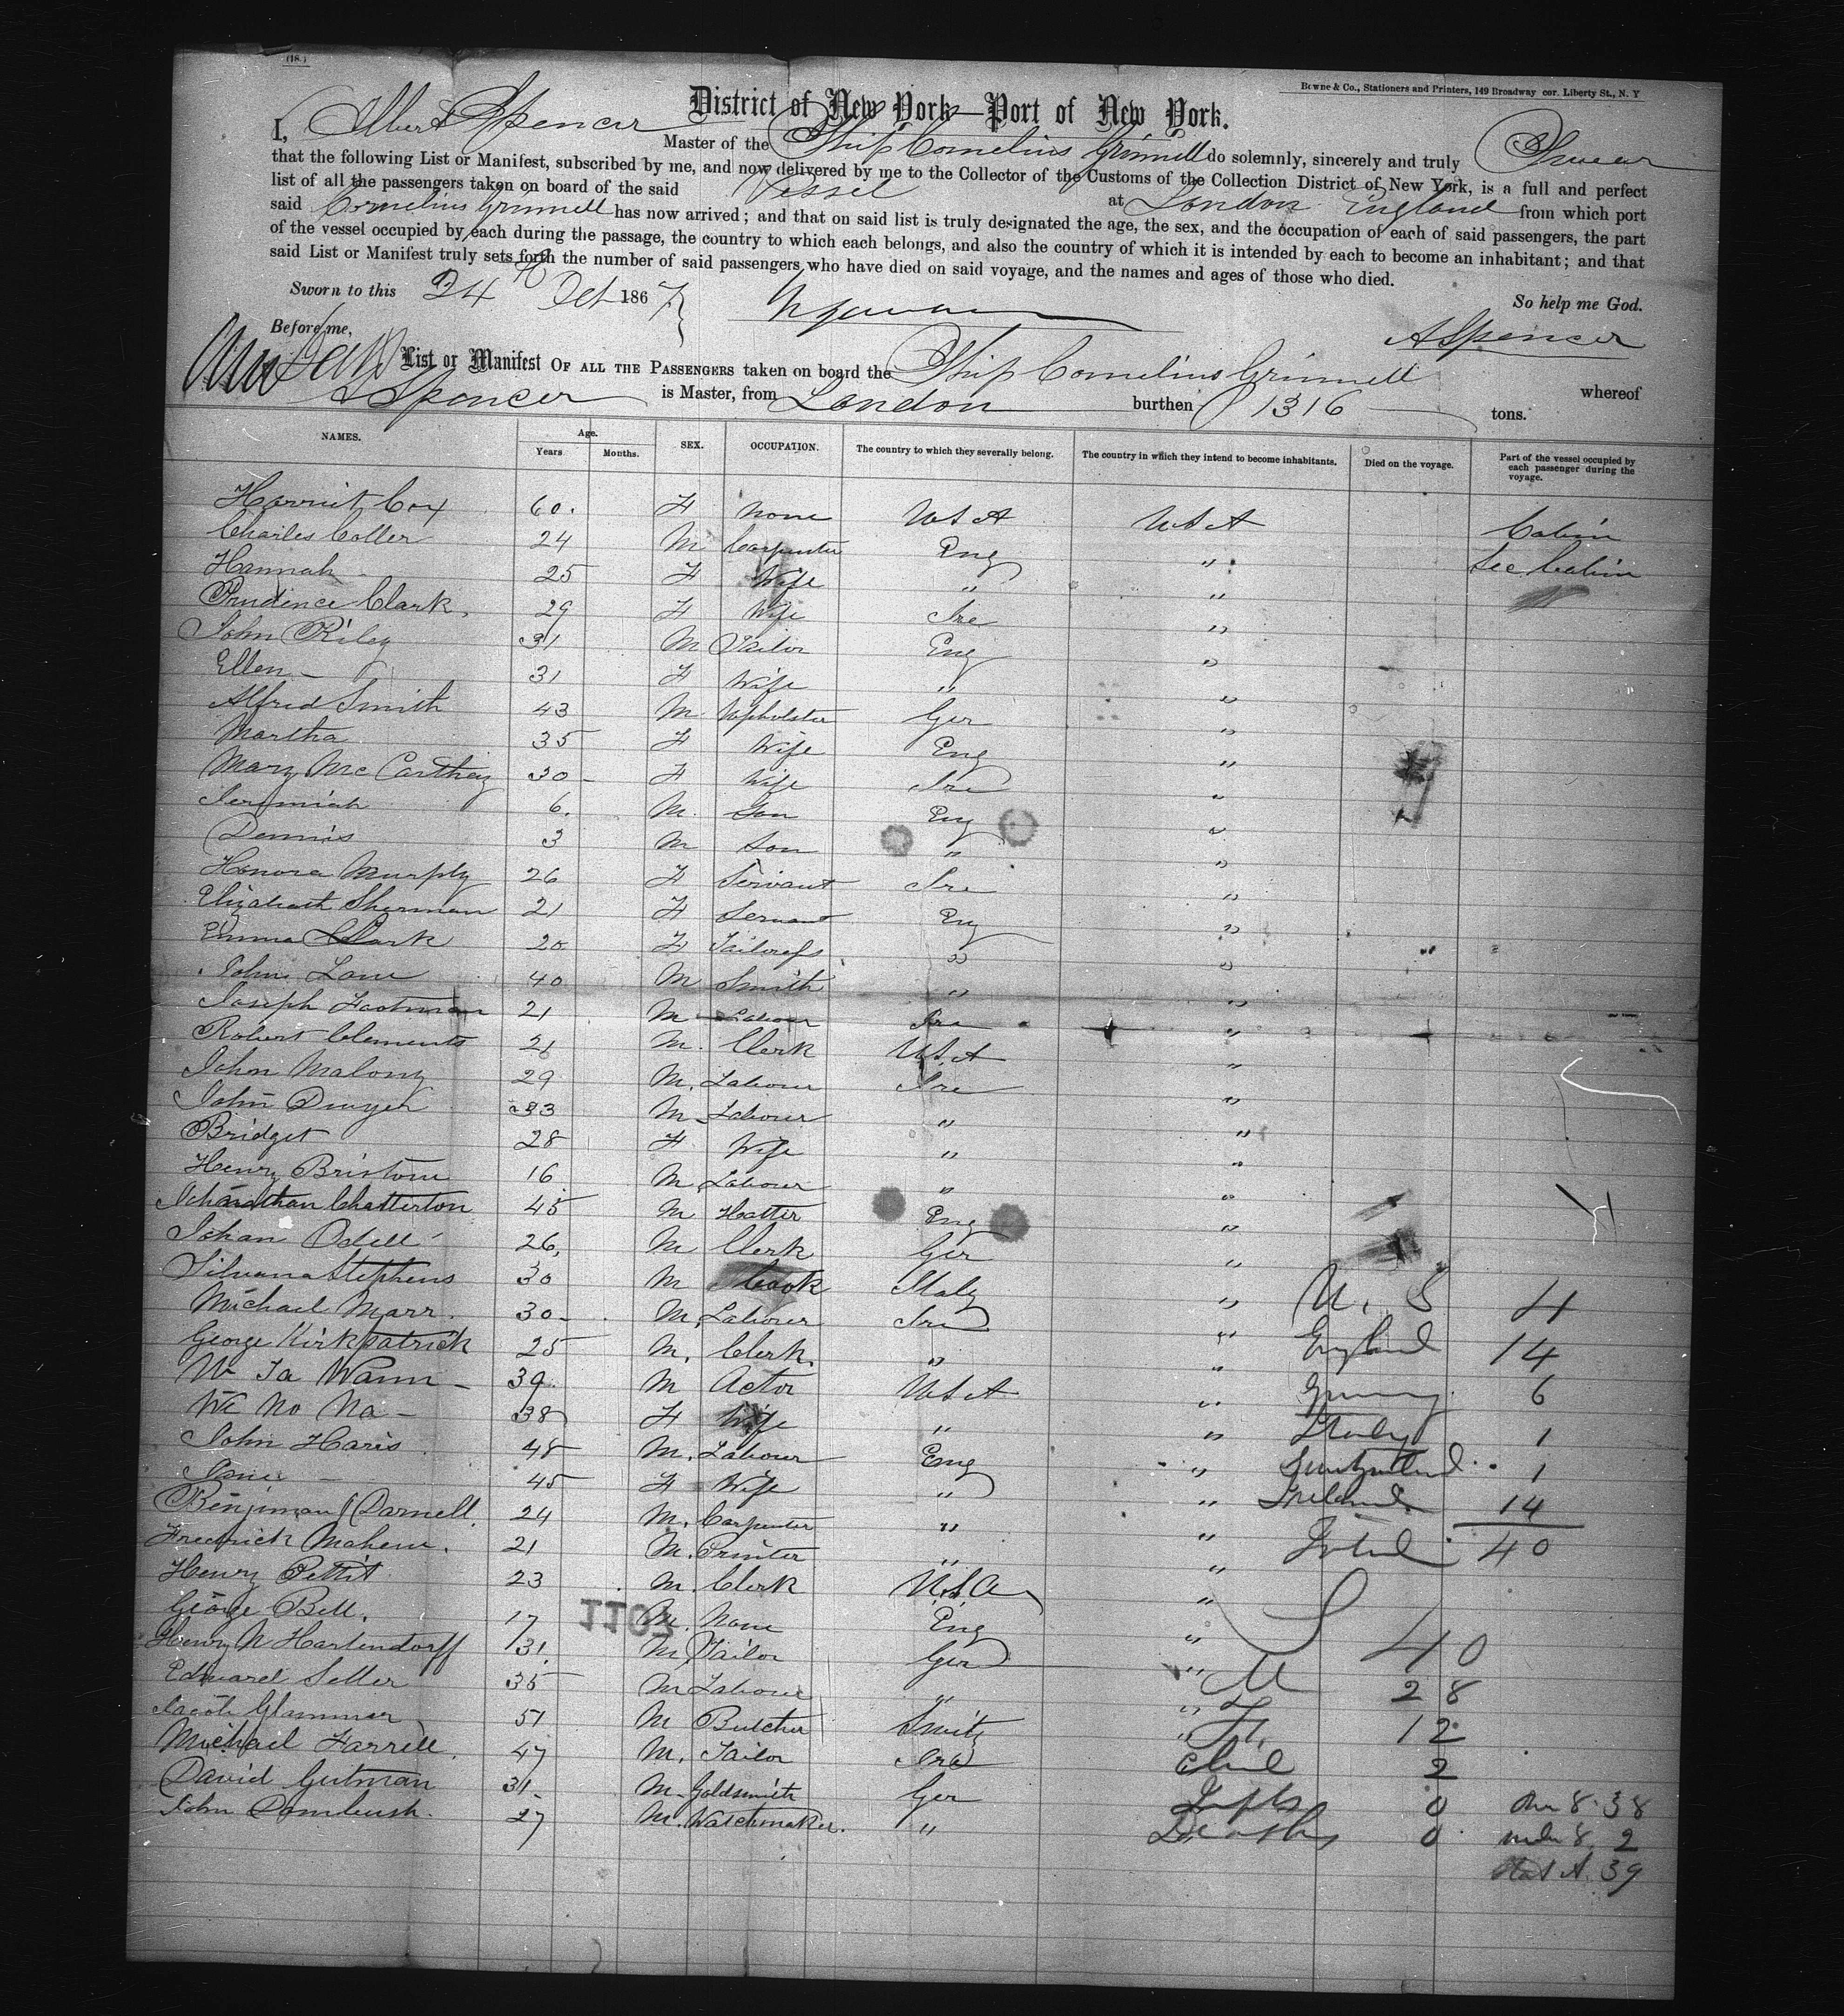 (18.)
Bowne & Co., Stationers and Printers, 149 Broadway cor. Liberty St., N. Y
District of New York—Port of New York.
I, Albert Spencer Master of the Ship Cornelius Grinnell do solemnly, sincerely and truly Swear
that the following List or Manifest, subscribed by me, and now delivered by me to the Collector of the Customs of the Collection District of New York, is a full and perfect
list of all the passengers taken on board of the said Vessel at London England from which port
said Cornelius Grinnell has now arrived; and that on said list is truly designated the age, the sex, and the occupation of each of said passengers, the part
of the vessel occupied by each during the passage, the country to which each belongs, and also the country of which it is intended by each to become an inhabitant; and that
said List or Manifest truly sets forth the number of said passengers who have died on said voyage, and the names and ages of those who died.
Sworn to this 24th Oct 1867 So help me God.
Before me, A Spencer
List or Manifest OF ALL THE PASSENGERS taken on board the Ship Cornelius Grinnell whereof
A Spencer is Master, from London burthen 1316 tons.
NAMES. Age. Years Months. SEX. OCCUPATION. The country to which they severally belong. The country in which they intend to become inhabitants. Died on the voyage. Part of the vessel occupied by each passenger during the voyage.
Harriet Cox 60. F None U S A U S A Cabin
Charles Coller 24 M Carpenter Eng " Sec Cabin
Hannah 25 F Wife " "
Prudence Clark 29 F Wife Ire "
John Riley 31 M Tailor Eng "
Ellen 31 F Wife " "
Alfred Smith 43 M Upholster Ger "
Martha 35 F Wife Eng "
Mary McCarthey 30 F Wife Ire "
Jeremiah 6. M. Son Eng "
Dennis 3 M Son " "
Honora Murphy 26 F Servant Ire "
Elizabeath Sherman 21 F Servant Eng "
Emma Clark 20 F Tailoress " "
John Lane 40 M Smith " "
Joseph Footman 21 M Labour Ire "
Robert Clements 21 M. Clerk U S A "
John Malony 29 M. Labour Ire "
John Dwyer 33 M Labour " "
Bridget 28 F Wife " "
Henry Bristow 16 M Labour " "
Johnathan Chatterton 45 M Hatter Eng "
Johan Odell 26, M Clerk Ger "
Silvana Stephens 30 M Cook Italy " U. S 4
Michael Marr. 30 M Labour Ire " England 14
George Kirkpatrick 25 M. Clerk. " " Germany 6
W Ta Wann 39. M Actor U S A " Italy 1
We No Na 38 F Wife " " Switzerland 1
John Haris 48 M. Labour Eng " Ireland 14
45 F Wife " " Total 40
Benjiman Darnell. 24 M. Carpenter " "
Fredrick 21 M. Printer " "
Henry Pettit 23 M. Clerk U.S.A "
George Bell. 17 M. None Eng " S 40
Henry N Hartendorff 31. M Tailor Ger " M 28
Edward Seller 35 M Labour " " F. 12
Jacob Glammer 51 M Butcher Switz " Chil 2
Michael Farrell. 47 M. Tailor Ire
David Gutman 31. M. Goldsmith Ger Infts 0 Over 8. 38
John Dombush. 27 M. Watchmaker. " Deaths 0 under 8 2
39
1107